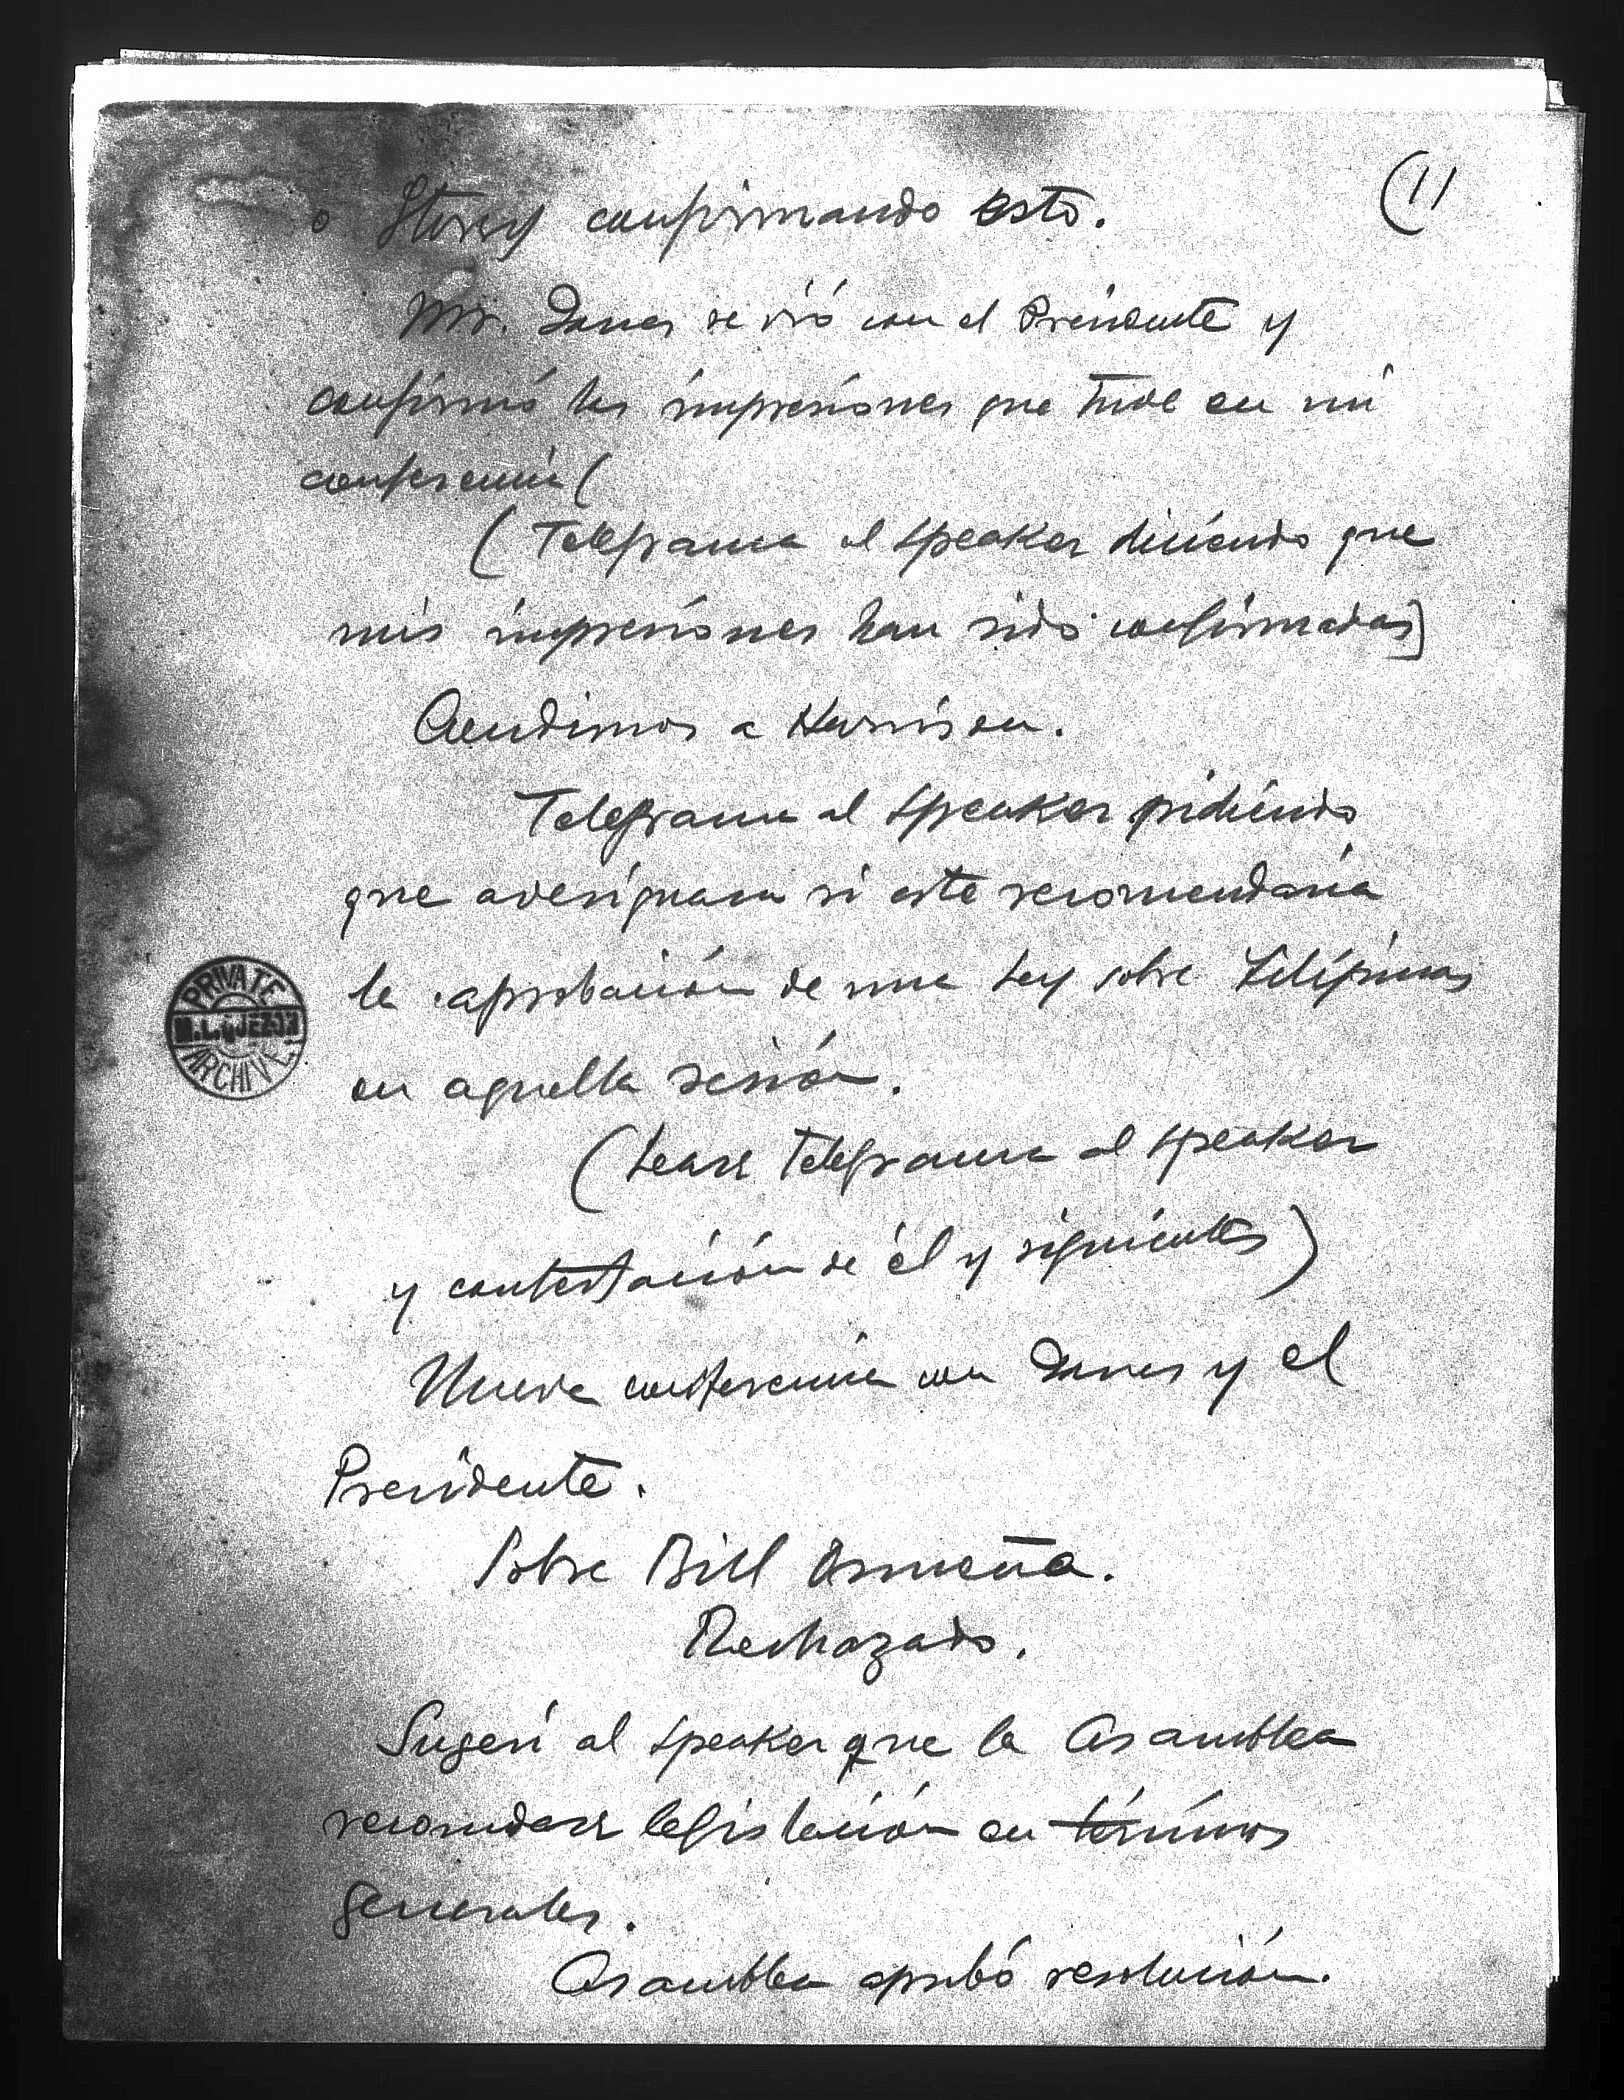 (11
o Storey confirmando esto.
Mr. Jones se vió con el Presidente y
confirmó las impresiones que tuve en mi
conferencia (
( Telegrama al Speaker diciendo que
mis impresiones han sido confirmadas]
Acudimos a Harrison.
Telegrama al Speaker pidiendo
que averiguara si este recomendaría
la aprobación de una ley sobre Filipinas
en aquella sesión.
PRIVATE
M. L. QUEZON
ARCHIVE
(Lease Telegrama al Speaker
y contestación de él y siguientes)
Nueva conferencia con Jones y el
Presidente.
Sobre Bill Osmeña.
Rechazado.
Sugerí al Speaker que la Asamblea
recomendase legislación en términos
generales.
Asamblea aprobó resolución.